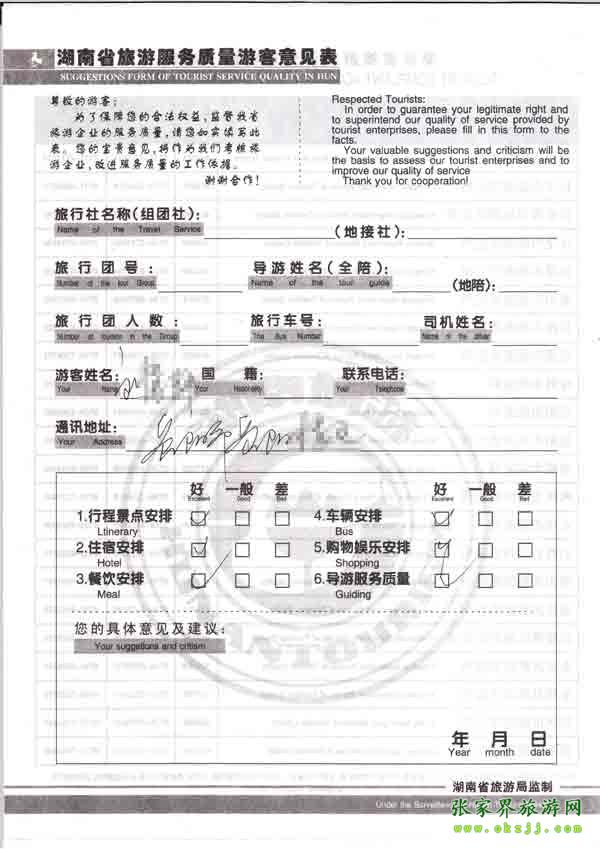 湖南省旅游服务质量游客意见表
SUGGESTIONS FORM OF TOURIST SERVICE QUALITY IN HUN
尊敬的游客:
为了保障您的合法权益,监督我省
旅游企业的服务质量,请您如实填写此
表。您的宝贵意见,将作为我们考核旅
游企业,改进服务质量的工作依据。
谢谢合作!
Respected Tourists:
In order to guarantee your legitimate right and
to superintend our quality of service provided by
tourist enterprises, please fill in this form to the
facts.
Your valuable suggestions and criticism will be
the basis to assess our tourist enterprises and to
improve our quality of service
Thank you for cooperation!
旅行社名称(组团社): (地接社):
Name of the Travel Service
旅行团号: 导游姓名(全陪): (地陪):
Number of the tour Group Name of the tour guide
旅行团人数: 旅行车号: 司机姓名:
Number of tourism in the Group The Bus Number Name of the driver
游客姓名: 国籍: 联系电话:
Your Name Your Nationality Your Telephone
通讯地址:
Your Address
好 一般 差 好 一般 差
Excellent Good Bad Excellent Good Bad
1.行程景点安排 4.车辆安排
Ltinerary Bus
2.住宿安排 5.购物娱乐安排
Hotel Shopping
3.餐饮安排 6.导游服务质量
Meal Guiding
您的具体意见及建议:
Your suggetions and critism
年 月 日
Year month date
湖南省旅游局监制
Under the
张家界旅游网
www.okzjj.com